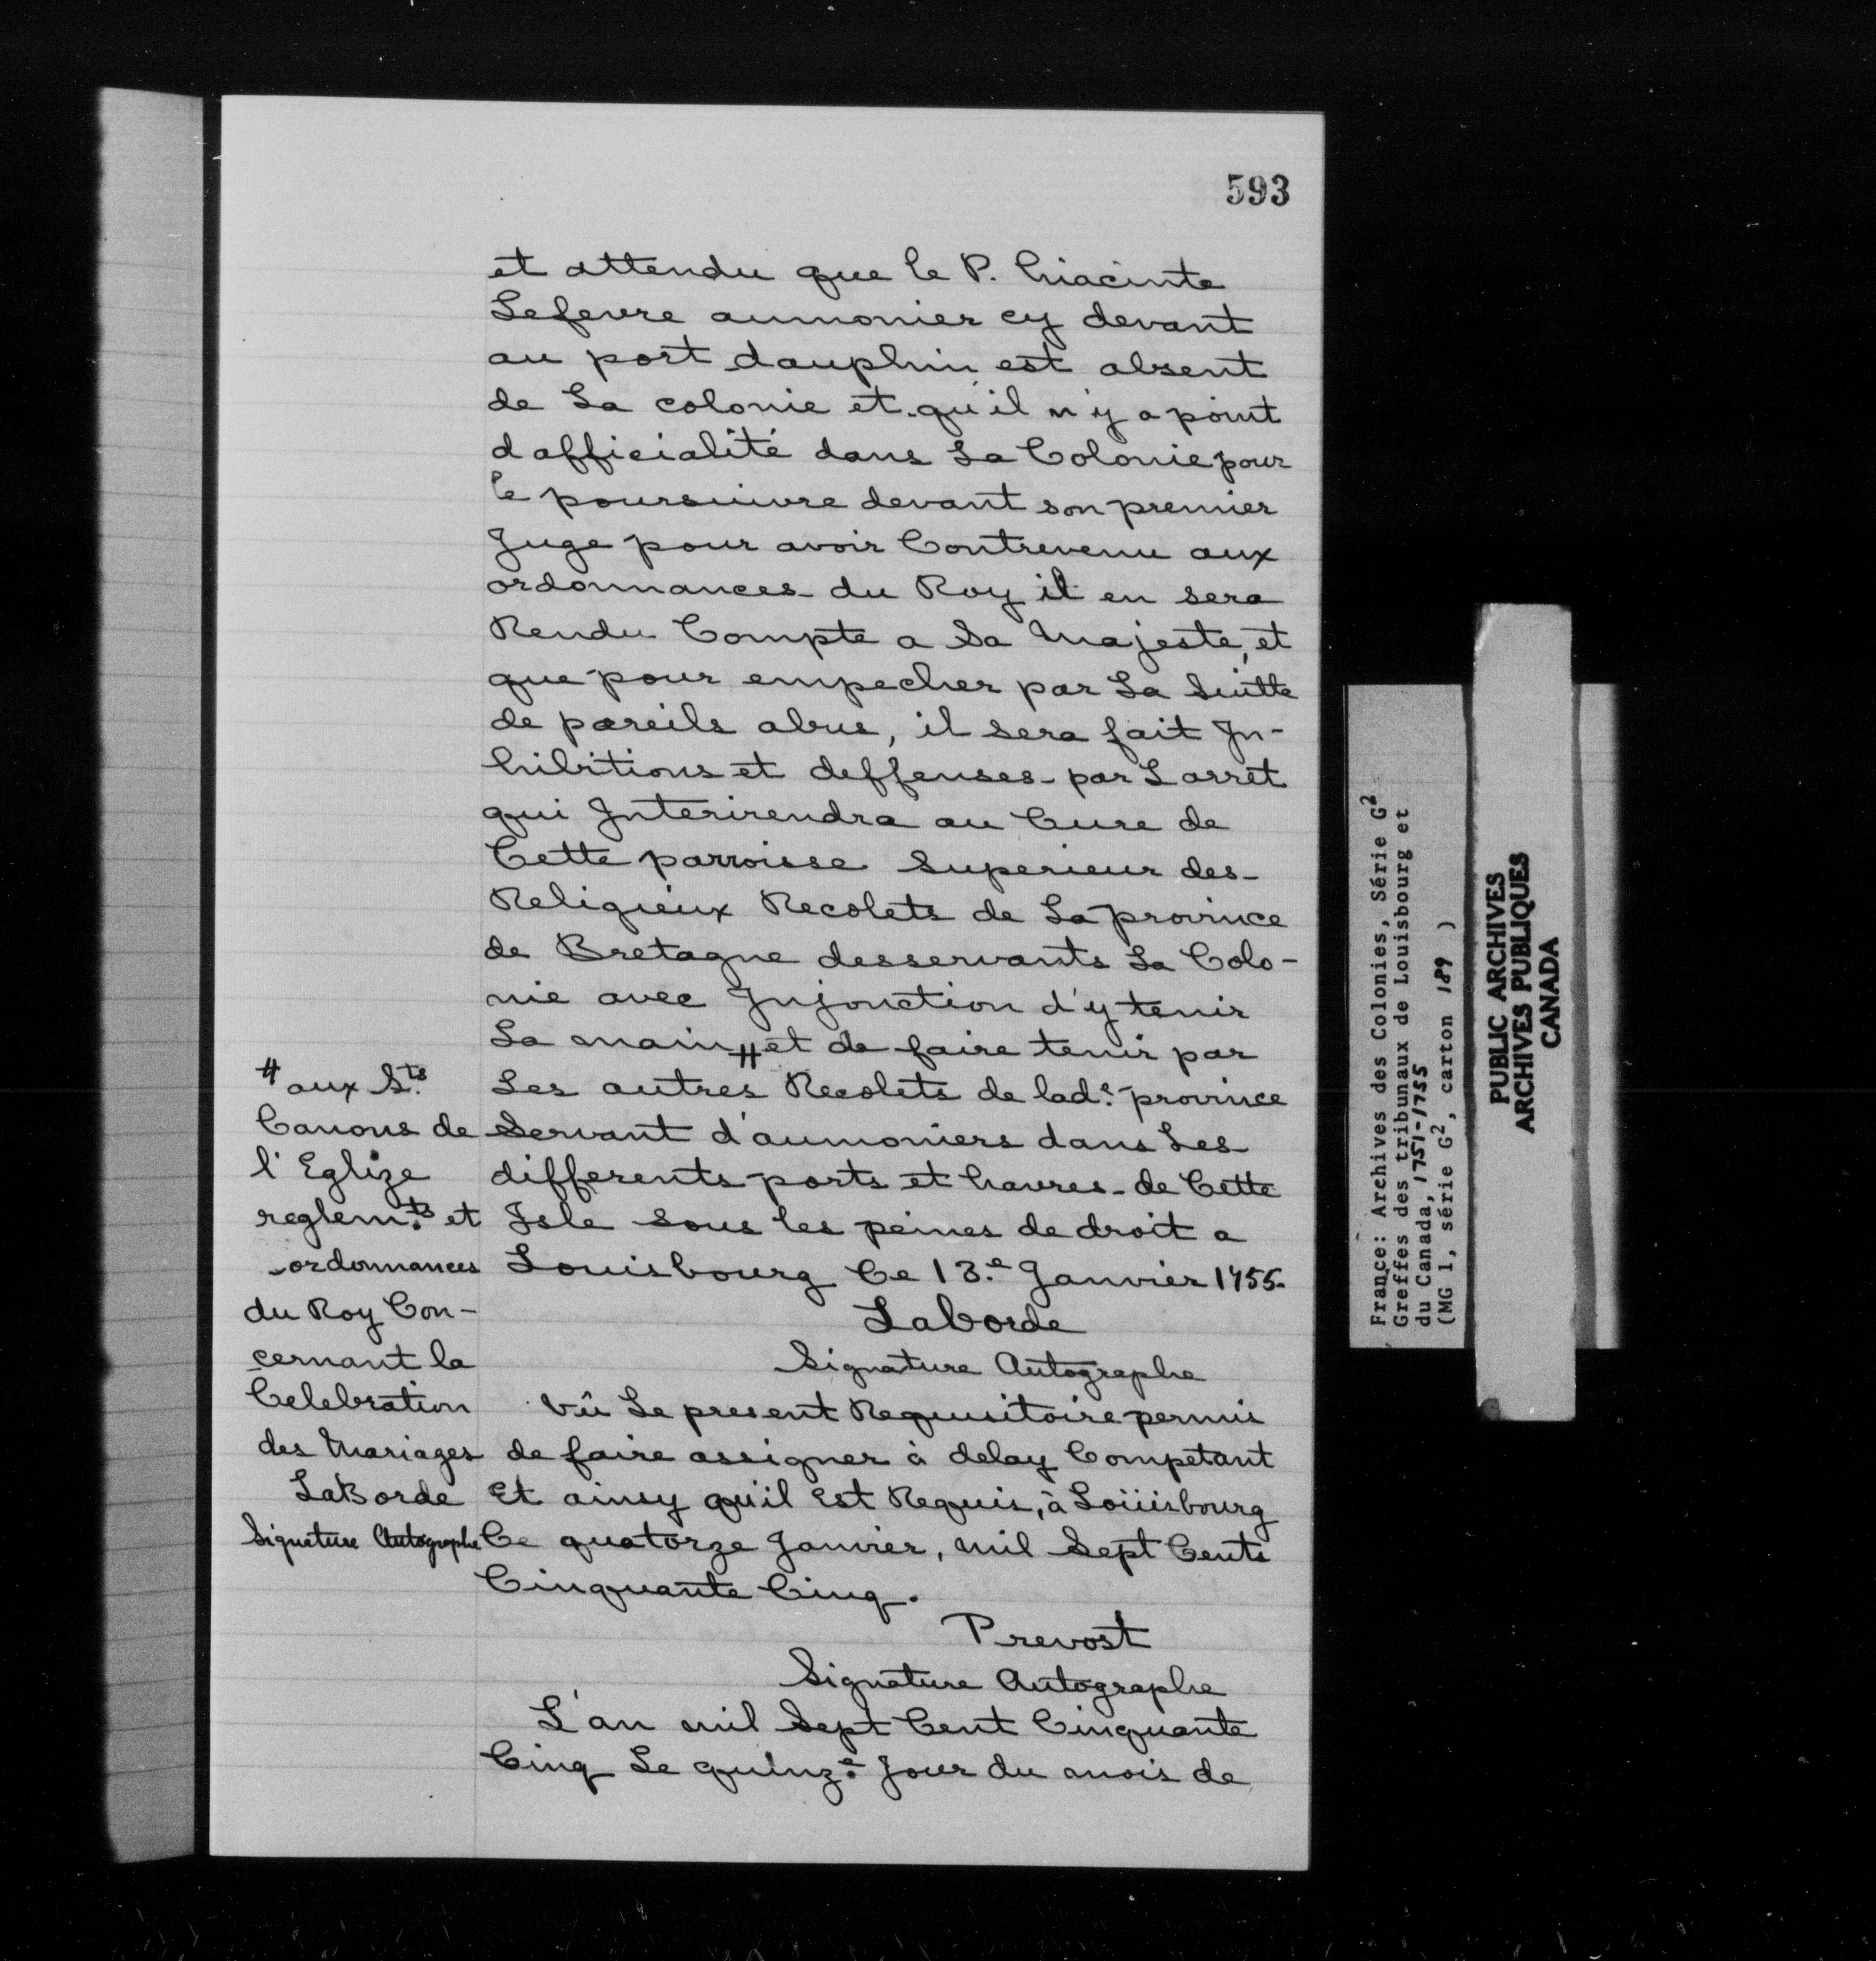 593
et attendu que le P. hiacinte
Lefevre aumonier cy devant
au port dauphin est absent
de La colonie et qu'il n'y a point
dofficialité dans La Colonie pour
le poursuivre devant son premier
Juge pour avoir Contrevenu aux
ordonnances du Roy il en sera
Rendu Compte a Sa Majeste, et
que pour empecher par La Suitte
de pareils abus, il sera fait In-
hibitions et deffenses par Larrêt
qui Interirendra au Cure de
Cette parroisse Superieur des
Religieux Recolets de La province
de Bretagne desservants La Colo-
nie avec Injonction d'y tenir
La main # et de faire tenir par
Les autres Recolets de lad.e province
Servant d'aumoniers dans Les
differents ports et havres de Cette
Isle sous les peines de droit a
Louisbourg Ce 13.e Janvier 1755.
Laborde
Signature Autographe
# aux S.ts
Canons de
l'Eglize
reglem.ts et
ordonnances
du Roy Con-
cernant la
Celebration
des Mariages
LaBorde
Signature Autographe
Vû Le present Requisitoire permis
de faire assigner à delay Competant
Et ainsy qu'il Est Requis, à Loüisbourg
Ce quatorze Janvier, mil Sept Cents
Cinquante Cinq.
Prevost
Signature Autographe
L'an mil Sept Cent Cinquante
Cinq Le quinz.e Jour du mois de
France: Archives des Colonies, Série G2
Greffes des tribunaux de Louisbourg et
du Canada, 1751-1755
(MG 1, série G2, carton 189 )
PUBLIC ARCHIVES
ARCHIVES PUBLIQUES
CANADA